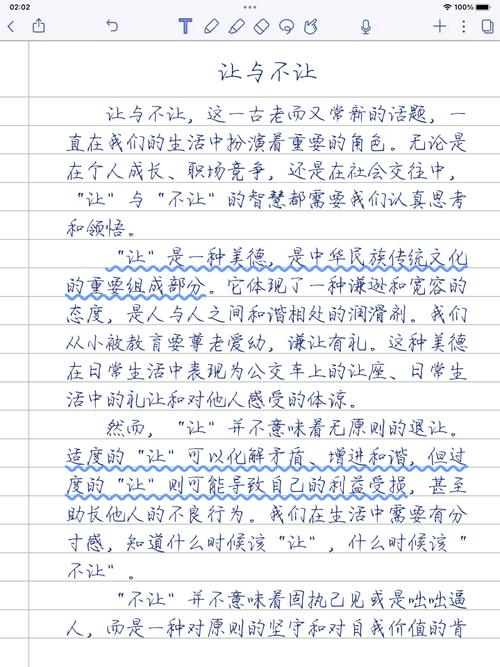 02:02
100%
T
让与不让
让与不让，这一古老而又常新的话题，一
直在我们的生活中扮演着重要的角色。无论是
在个人成长、职场竞争，还是在社会交往中，
“让”与“不让”的智慧都需要我们认真思考
和领悟。
“让”是一种美德，是中华民族传统文化
的重要组成部分。它体现了一种谦逊和宽容的
态度，是人与人之间和谐相处的润滑剂。我们
从小被教育要尊老爱幼，谦让有礼。这种美德
在日常生活中表现为公交车上的让座、日常生
活中的礼让和对他人感受的体谅。
然而，“让”并不意味着无原则的退让。
适度的“让”可以化解矛盾、增进和谐，但过
度的“让”则可能导致自己的利益受损，甚至
助长他人的不良行为。我们在生活中需要有分
寸感，知道什么时候该“让”，什么时候该“
不让”。
“不让”并不意味着固执己见或是咄咄逼
人，而是一种对原则的坚守和对自我价值的肯